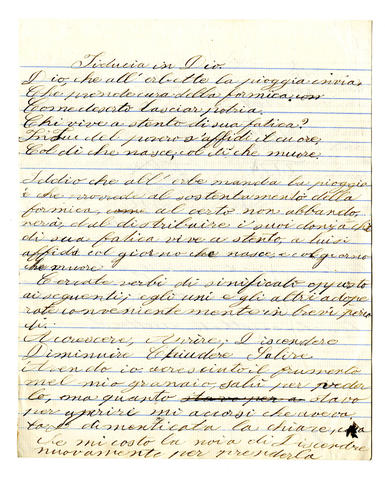 Fiducia in Dio.
Dio che all'erbette la pioggia invia,
Che prende cura della formica,
Come deserto lasciar potria,
Chi vive a stento di sua fatica?
In lui del povero s'affidi il cuore,
Col dì che nasce, col dì che muore.
Iddio che all'erbe manda la pioggia
e che provvede al sostentamento della
formica, come al certo non abbando
nerà, dal distribuire i suoi doni a chi
di sua fatica vive a stento, a lui si
affida col giorno che nasce e col giorno
che muore
Cercate verbi di significato opposto
ai seguenti; e gli uni e gli altri adope
rate convenientemente in brevi perio
di.
Accrescere, Aprire, Discendere
Diminuire Chiudere Salire
Avendo io acresciuto il frumento
nel mio granaio, salii per veder
lo, ma quanto stavo per a stavo
per aprire mi accorsi che aveva
dimenticata la chiave,
che mi costò la noia di Discendere
nuovamente per prenderla